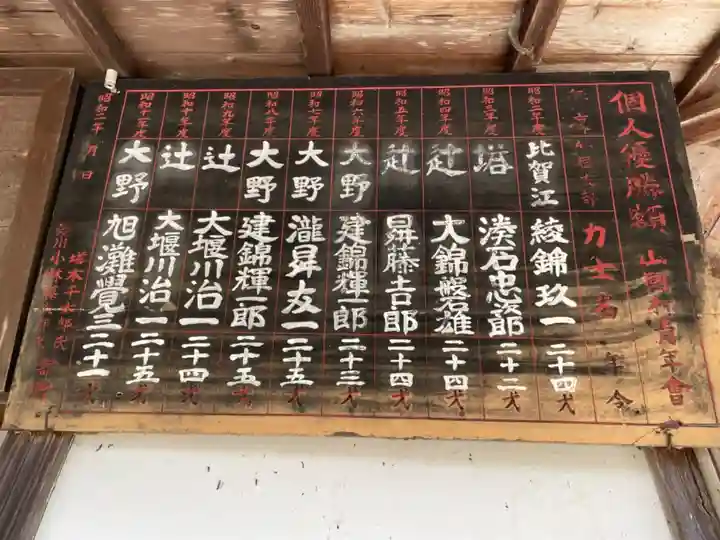 個人優勝額 山国村青年會
力士名 年令
昭和二年度 比賀江 綾錦玖一 二十四才
昭和三年度 塔 湊石忠次郎 二十二才
昭和四年度 辻 大錦盤雄 二十四才
昭和五年度 辻 昇藤吉郎 二十四才
昭和六年度 大野 建錦輝一郎 二十三才
昭和七年度 大野 瀧昇友一 二十五才
昭和八年度 大野 建錦輝一郎 二十五才
昭和九年度 辻 大堰川治一 二十四才
昭和十年度 辻 大堰川治一 二十五才
昭和十一年度 大野 旭灘覺三 二十一才
昭和二年 月 日